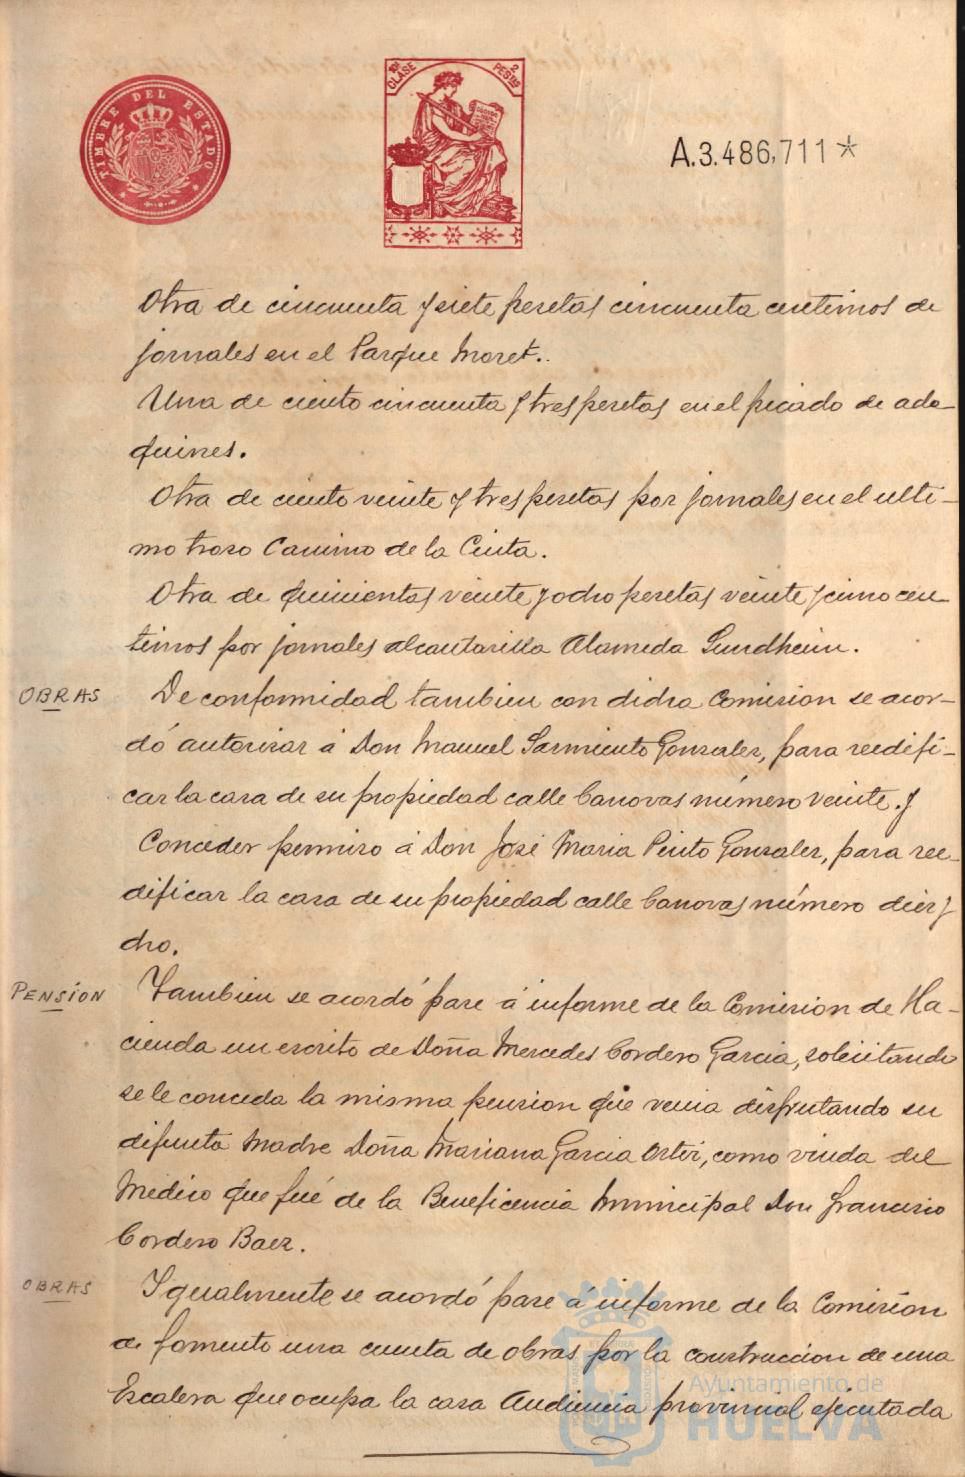 TIMBRE DEL ESTADO
10ª CLASE
2 PESETAS
A.3.486,711*
Otra de cincuenta y siete pesetas cincuenta centimos de
jornales en el Parque Moret..
Una de ciento cincuenta y tres pesetas en el picado de ado-
quines.
Otra de ciento veinte y tres pesetas por jornales en el ulti-
mo troso Camino de la Cinta.
Otra de quinientas veinte y ocho pesetas veinte y cinco cen
timos por jornales alcantarilla Alameda Sundheim.
OBRAS
De conformidad tambien con dicha Comision se acor-
dó autorizar á Don Manuel Sarmiento Gonzalez, para reedifi-
car la casa de su propiedad calle Canovas número veinte. y
Conceder permiso á Don José Maria Pinto Gonzalez, para ree-
dificar la casa de su propiedad calle Canovas número diez y
cho.
PENSÍON
Tambien se acordó pase á informe de la Comision de Ha-
cienda un escrito de Doña Mercedes Cordero Garcia, solicitando
se le conceda la misma pension que venia disfrutando su
difunta Madre Doña Mariana Garcia Ortiz, como viuda del
Medico que fué de la Beneficencia Municipal Don Francisco
Cordero Baez.
OBRAS
Igualmente se acordó pase á informe de la Comisión
de fomento una cuenta de obras por la construccion de una
Escalera que ocupa la casa Audiencia provincial ejecutada
Ayuntamiento de
HUELVA